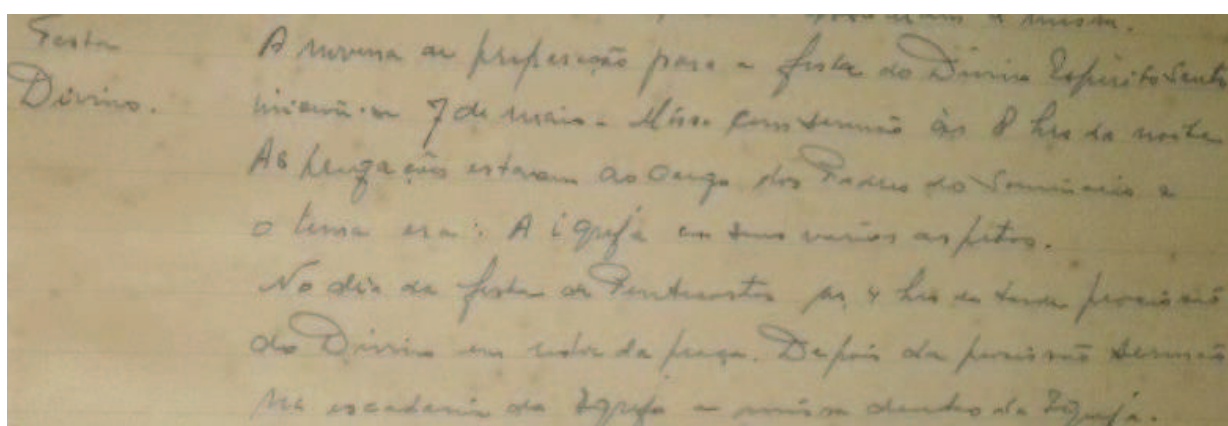 a missa.
Festa A novena de preparação para a festa do Divino Espírito Santo
Divino. iniciou-se 7 de maio. Missa com sermão às 8 hrs da noite
As pregações estavam ao cargo dos Padres do Seminario e
o tema era: A igreja em seus varios aspetos.
No dia da festa de Pentecostes as 4 hrs da tarde procissão
do Divino em redor da praça. Depois da procissão sermão
na escadaria da Igreja e missa dentro da Igreja.